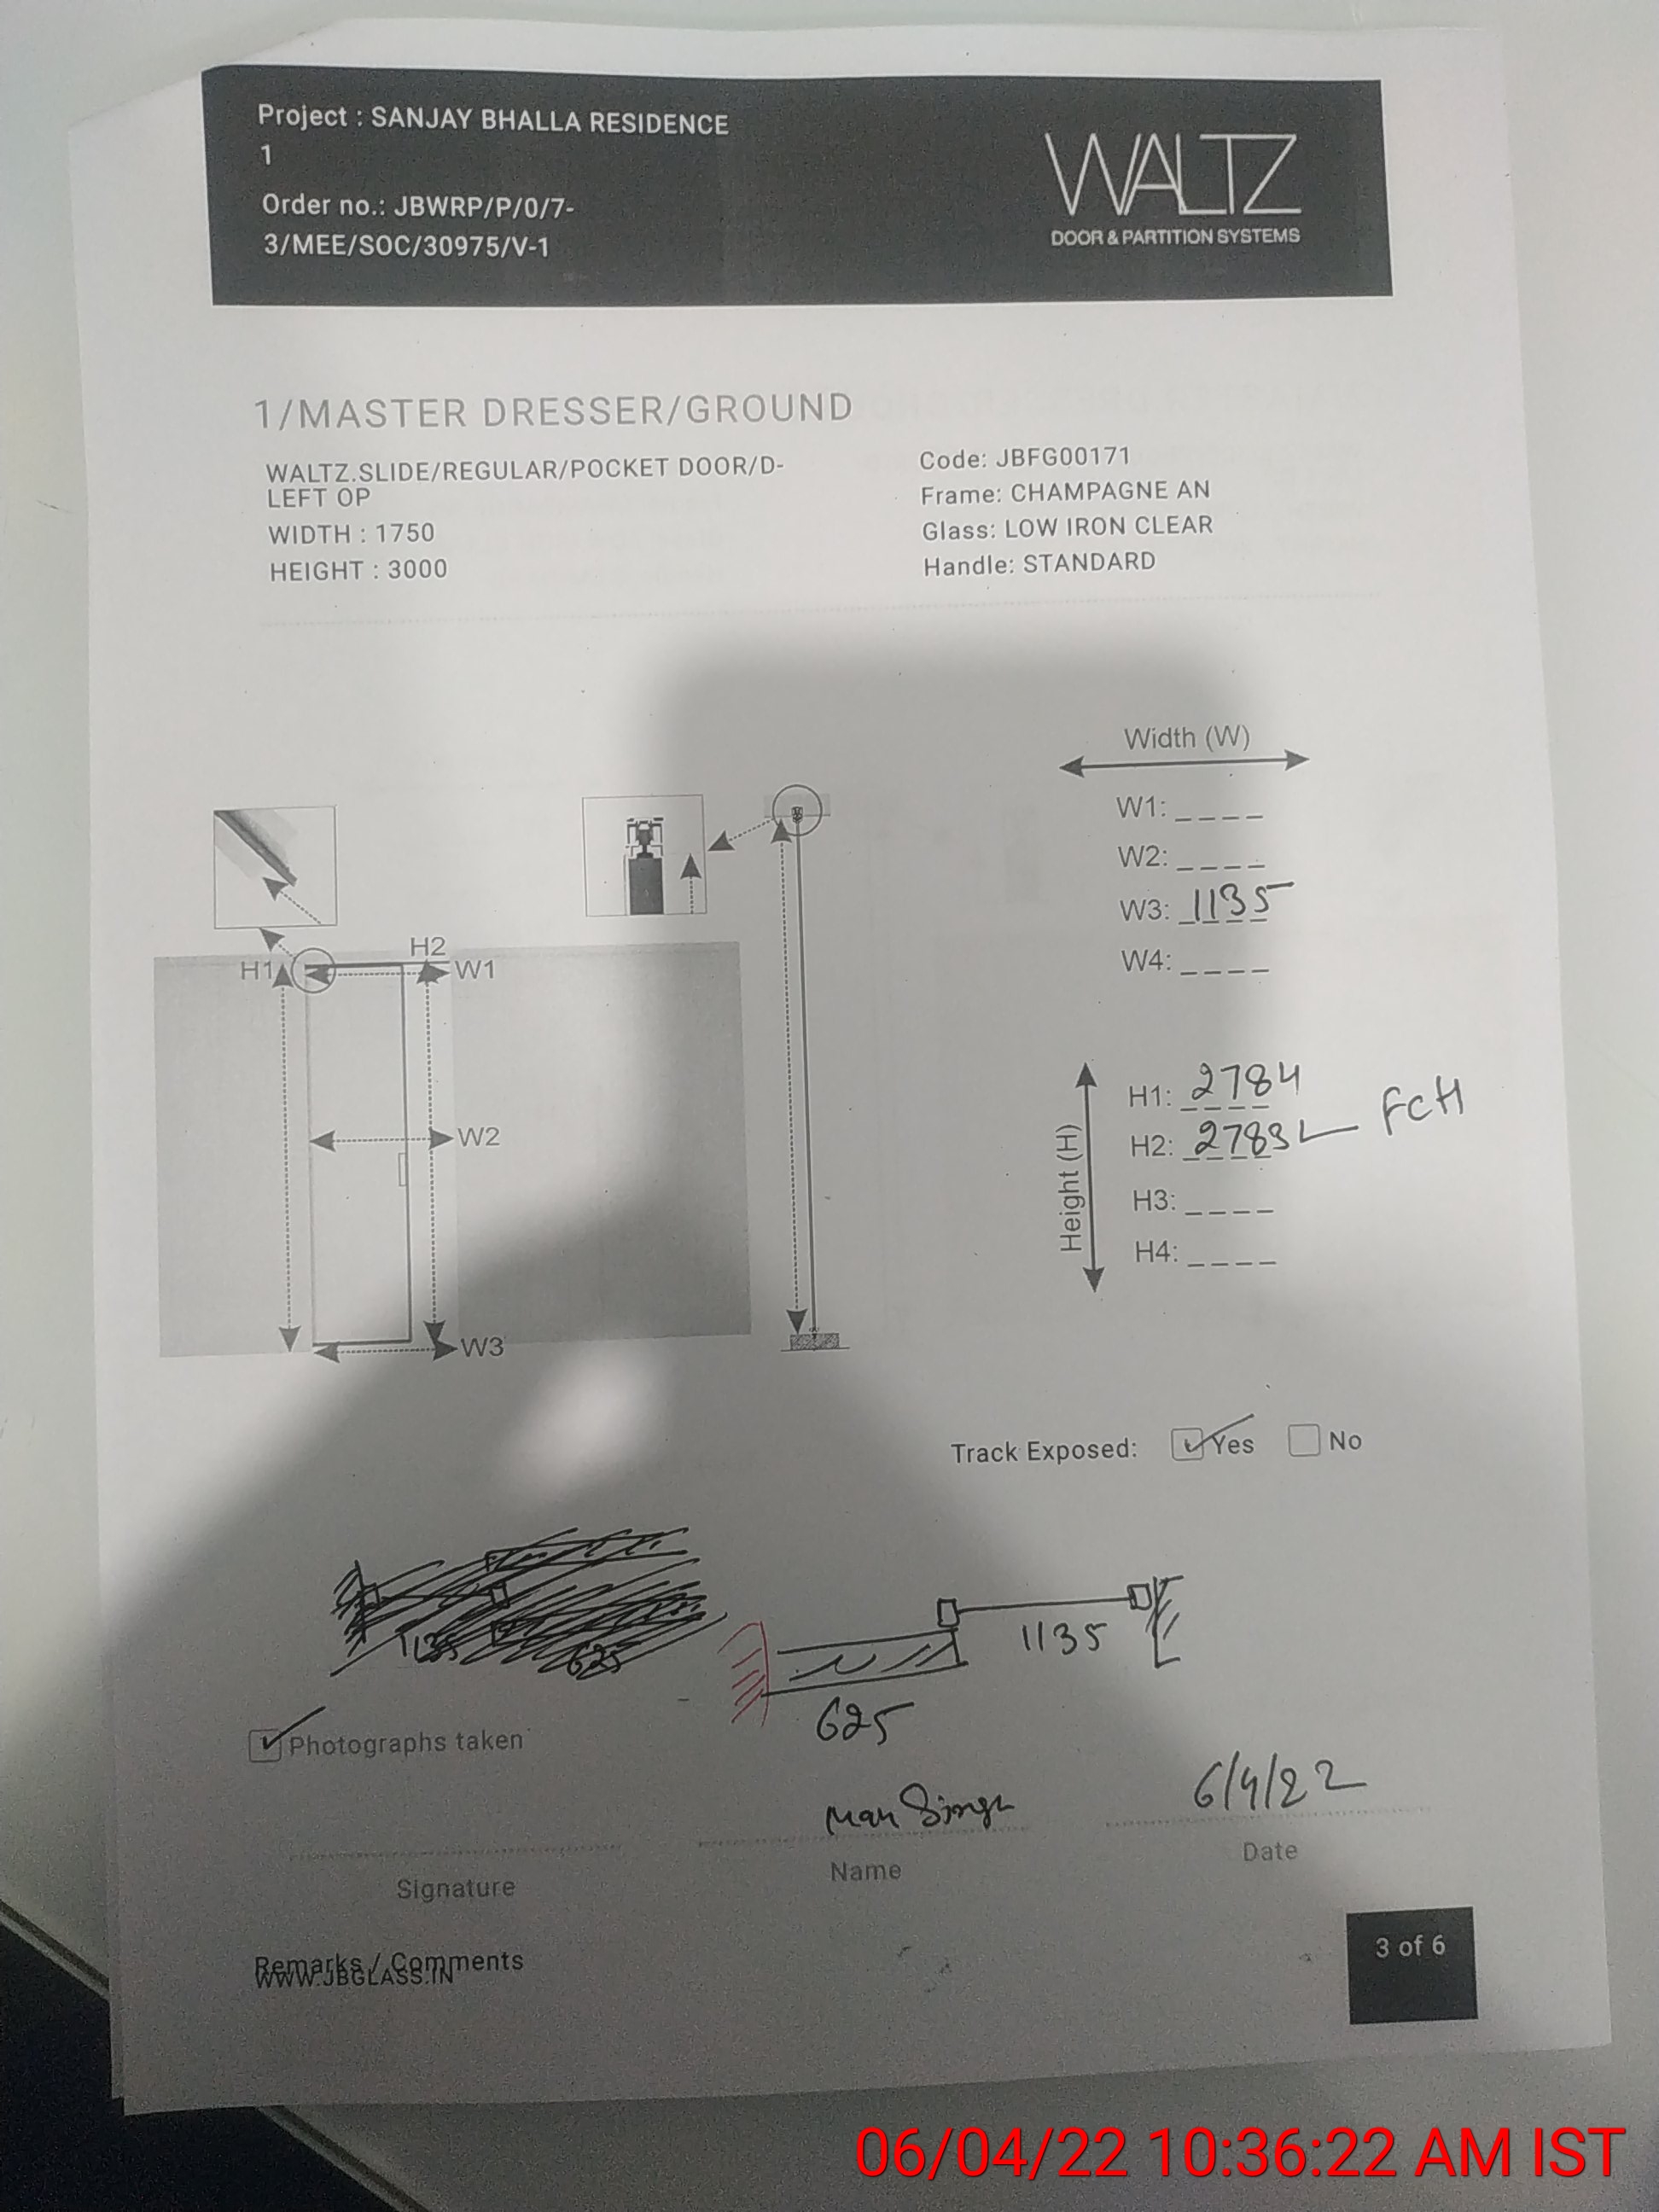 Project : SANJAY BHALLA RESIDENCE
1
Order no.: JBWRP/P/0/7-
3/MEE/SOC/30975/V-1
WALTZ
DOOR & PARTITION SYSTEMS
1/MASTER DRESSER/GROUND
WALTZ.SLIDE/REGULAR/POCKET DOOR/D-
LEFT OP
WIDTH : 1750
HEIGHT : 3000
Code: JBFG00171
Frame: CHAMPAGNE AN
Glass: LOW IRON CLEAR
Handle: STANDARD
Width (W)
W1: _ _ _ _
W2: _ _ _ _
W3: 1135
W4: _ _ _ _
H1
H2
W1
W2
W3
Height (H)
H1: 2784
H2: 2783 FCH
H3: _ _ _ _
H4: _ _ _ _
Track Exposed: Yes No
1135
625
1135
625
Photographs taken
Man Singh
6/4/22
Signature
Name
Date
Remarks / Comments
WWW.JBGLASS.IN
3 of 6
06/04/22 10:36:22 AM IST